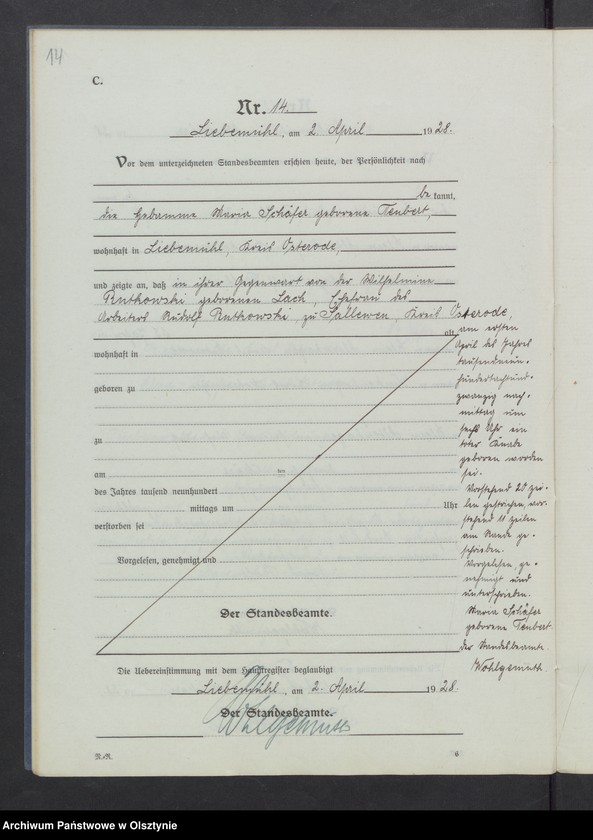 14
C.
Nr. 14.
Liebemühl, am 2. April 1928.
Vor dem unterzeichneten Standesbeamten erschien heute, der Persönlichkeit nach
bekannt,
die Hebamme Maria Schäfer geborene Teubert,
wohnhaft in Liebemühl, Kreis Osterode,
und zeigte an, daß in ihrer Gegenwart von der Wilhelmine
Rutkowski geborenen Lach, Ehefrau des
Arbeiters Rudolf Rutkowski, zu Sallewen, Kreis Osterode,
alt,
wohnhaft in
geboren zu
zu
am ten
des Jahres tausend neunhundert
mittags um Uhr
verstorben sei
Vorgelesen, genehmigt und
Der Standesbeamte.
am ersten
April des Jahres
tausendneun-
hundertachtund-
zwanzig nach-
mittag um
sechs Uhr ein
toter Knabe
geboren worden
sei.
Vorstehend 20 Zei-
len gestrichen, vor-
stehend 11 Zeilen
am Rande ge-
schrieben.
Vorgelesen, ge-
nehmigt und
unterschrieben.
Maria Schäfer
geborene Teubert.
der Standesbeamte.
Wohlgemuth.
Die Uebereinstimmung mit dem Hauptregister beglaubigt
Liebemühl, am 2. April 1928.
Der Standesbeamte.
Wohlgemuth
R.-R.
6
Archiwum Państwowe w Olsztynie